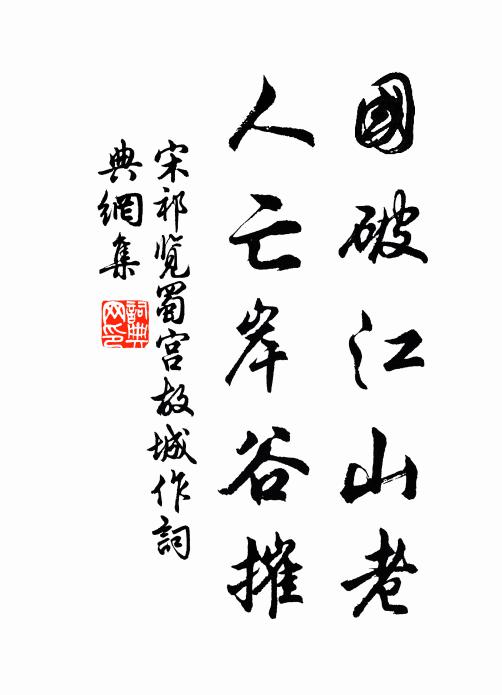 國破江山老
人亡岸谷摧
宋祁覽蜀宮故城作詞
典網集
詞典網印